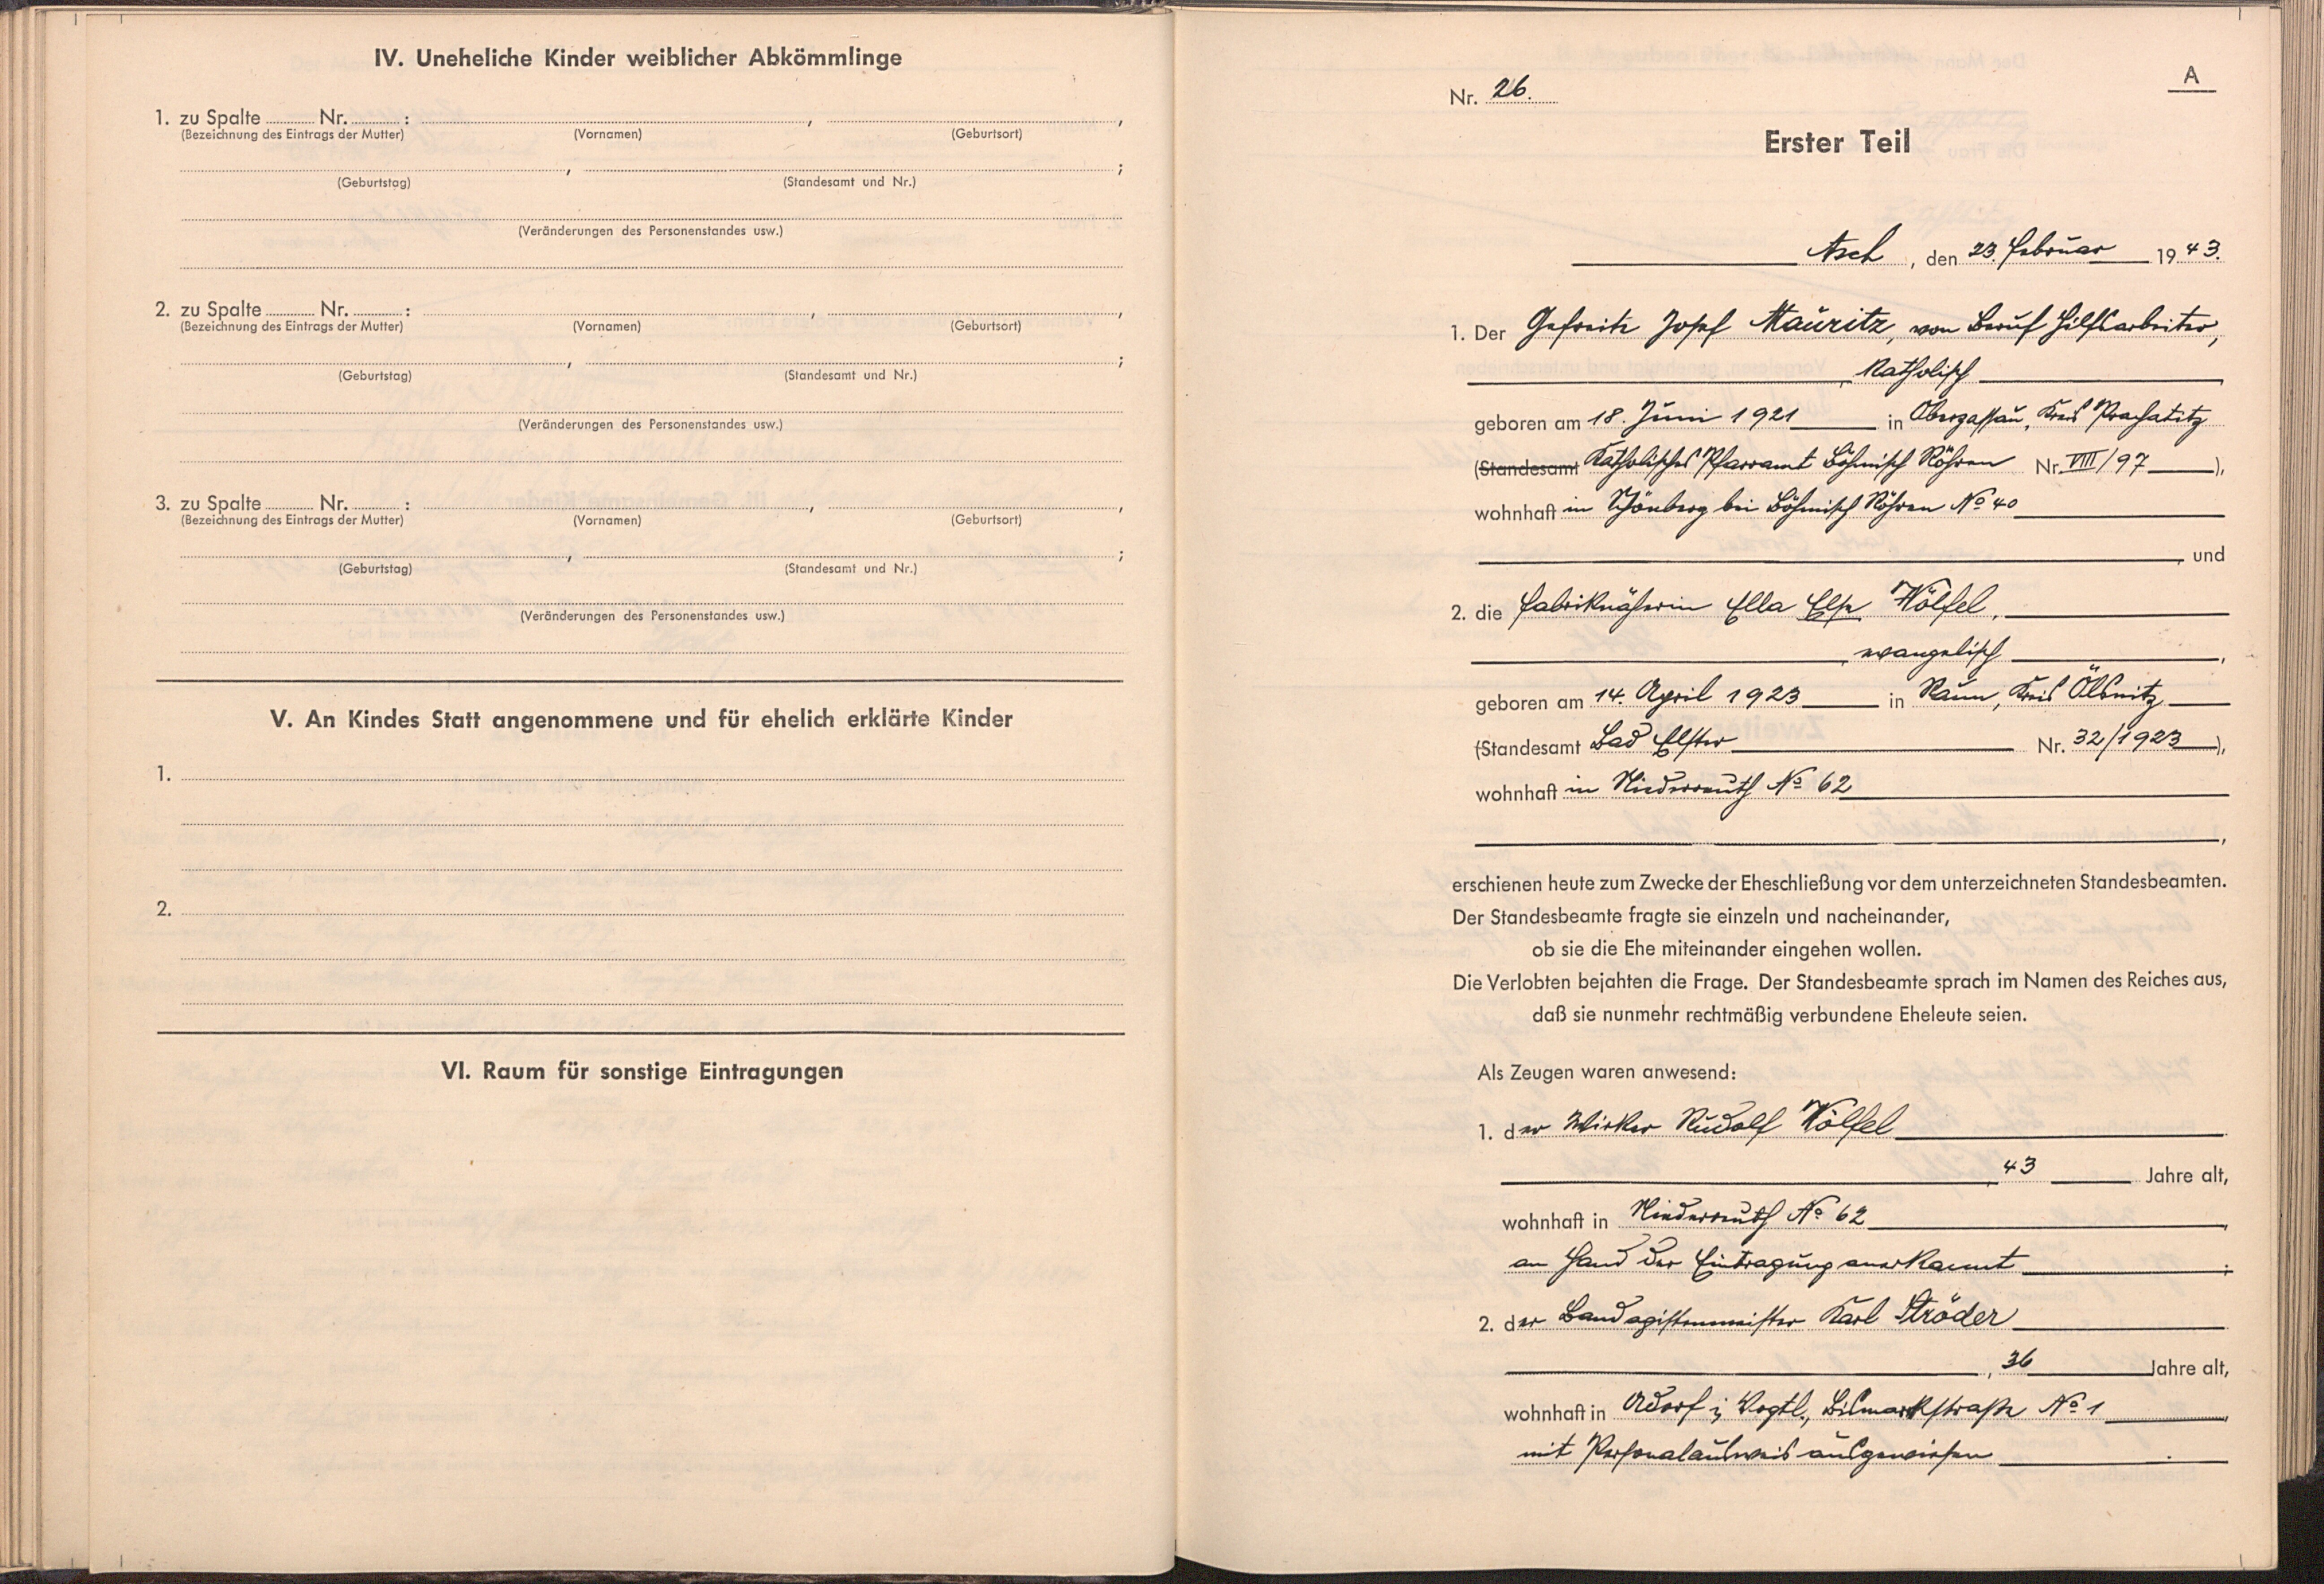 IV. Uneheliche Kinder weiblicher Abkömmlinge
1. zu Spalte ........ Nr. ........ : , ,
(Bezeichnung des Eintrags der Mutter) (Vornamen) (Geburtsort)
, ;
(Geburtstag) (Standesamt und Nr.)
(Veränderungen des Personenstandes usw.)
2. zu Spalte ........ Nr. ........ : , ,
(Bezeichnung des Eintrags der Mutter) (Vornamen) (Geburtsort)
, ;
(Geburtstag) (Standesamt und Nr.)
(Veränderungen des Personenstandes usw.)
3. zu Spalte ........ Nr. ........ : , ,
(Bezeichnung des Eintrags der Mutter) (Vornamen) (Geburtsort)
, ;
(Geburtstag) (Standesamt und Nr.)
(Veränderungen des Personenstandes usw.)
V. An Kindes Statt angenommene und für ehelich erklärte Kinder
1.
2.
VI. Raum für sonstige Eintragungen
A
Nr. 26.
Erster Teil
Asch, den 23. Februar 1943.
1. Der Gefreite Josef Mauritz, von Beruf Hilfsarbeiter,
, katholisch
geboren am 18. Juni 1921 in Oberzassau, Kreis Prachatitz
(Standesamt Katholisches Pfarramt Böhmisch Röhren Nr. VIII/97),
wohnhaft in Schönberg bei Böhmisch Röhren No 40
, und
2. die Fabriknäherin Ella Else Wölfel,
, evangelisch,
geboren am 14. April 1923 in Raun, Kreis Ölsnitz
(Standesamt Bad Elster Nr. 32/1923),
wohnhaft in Niederreuth No 62
,
erschienen heute zum Zwecke der Eheschließung vor dem unterzeichneten Standesbeamten.
Der Standesbeamte fragte sie einzeln und nacheinander,
ob sie die Ehe miteinander eingehen wollen.
Die Verlobten bejahten die Frage. Der Standesbeamte sprach im Namen des Reiches aus,
daß sie nunmehr rechtmäßig verbundene Eheleute seien.
Als Zeugen waren anwesend:
1. der Wirker Rudolf Wölfel
, 43 Jahre alt,
wohnhaft in Niederreuth No 62,
an Hand der Eintragung anerkannt;
2. der Karl Ströder
, 36 Jahre alt,
wohnhaft in Adorf i. Vogtl., Bismarkstraße No 1,
mit Personalausweis ausgewiesen.